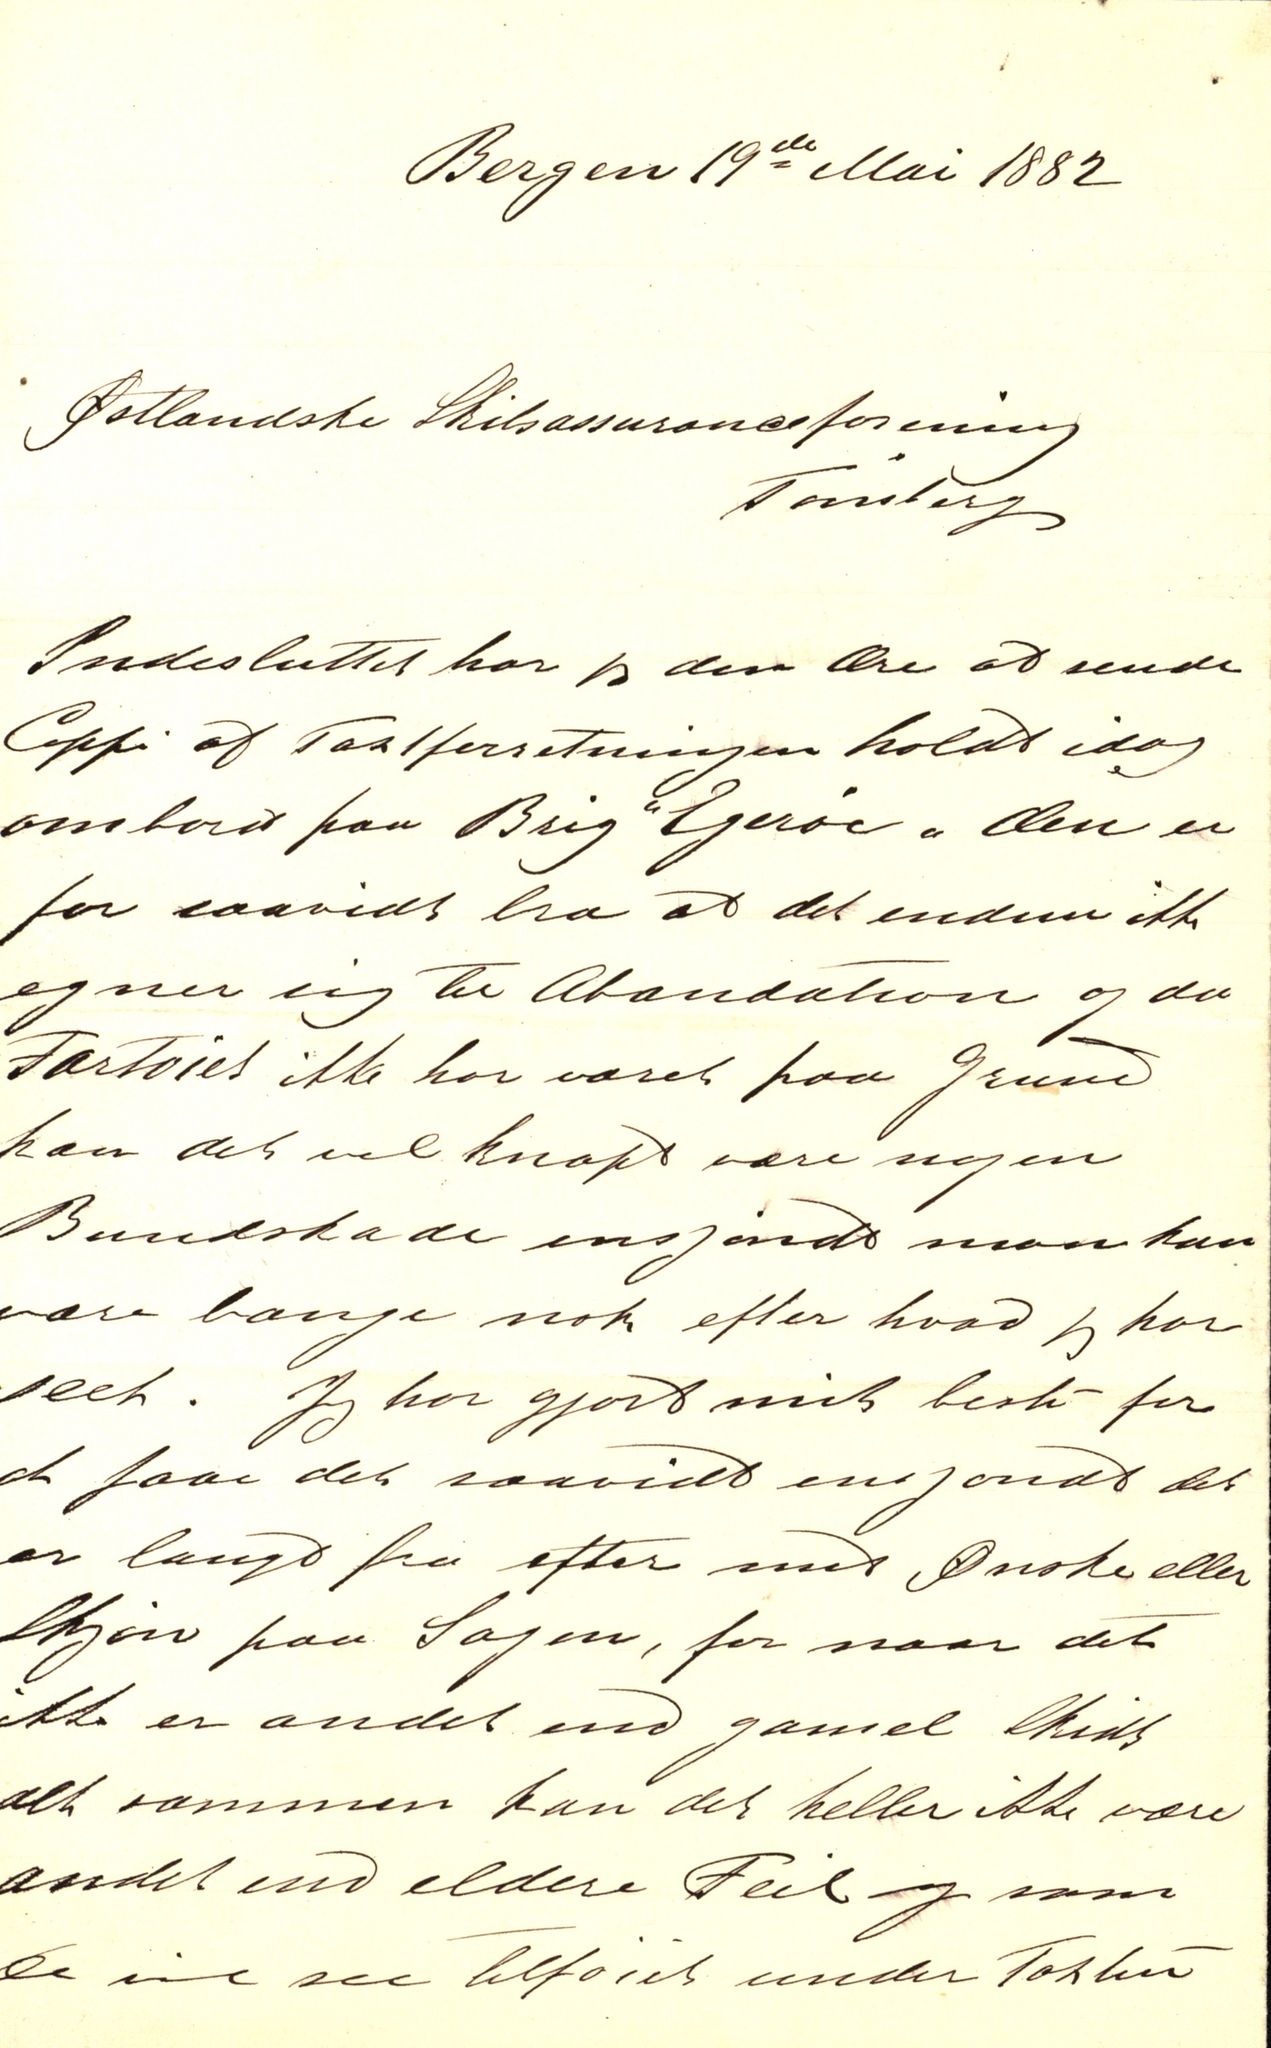 Bergen 19de Mai 1882
Østlandske Skibsassuranceforening
Tønsberg
Indesluttet har jeg den Ære at sende
Coppi af Taxtforretningen holdt idag
ombord paa Brig "Egerøe" Den er
for saavidt bra at det endnu ikke
egner sig til Abandation og da
Fartøiet ikke har været paa Grund
kan det vel knapt være nogen
Bundskade ensjøndt man kan
være bange nok efter hvad jeg har
seet. Jeg har gjort mit beste for
at faae det saavidt ensjøndt det
er langt fra efter mit Ønske eller
Skjøn paa Sagen, for naar det
ikke er andet end gamel Skidt
alt sammen kan det heller ikke være
andet end eldere Feil og som
De vil see tilføiet under Taxten